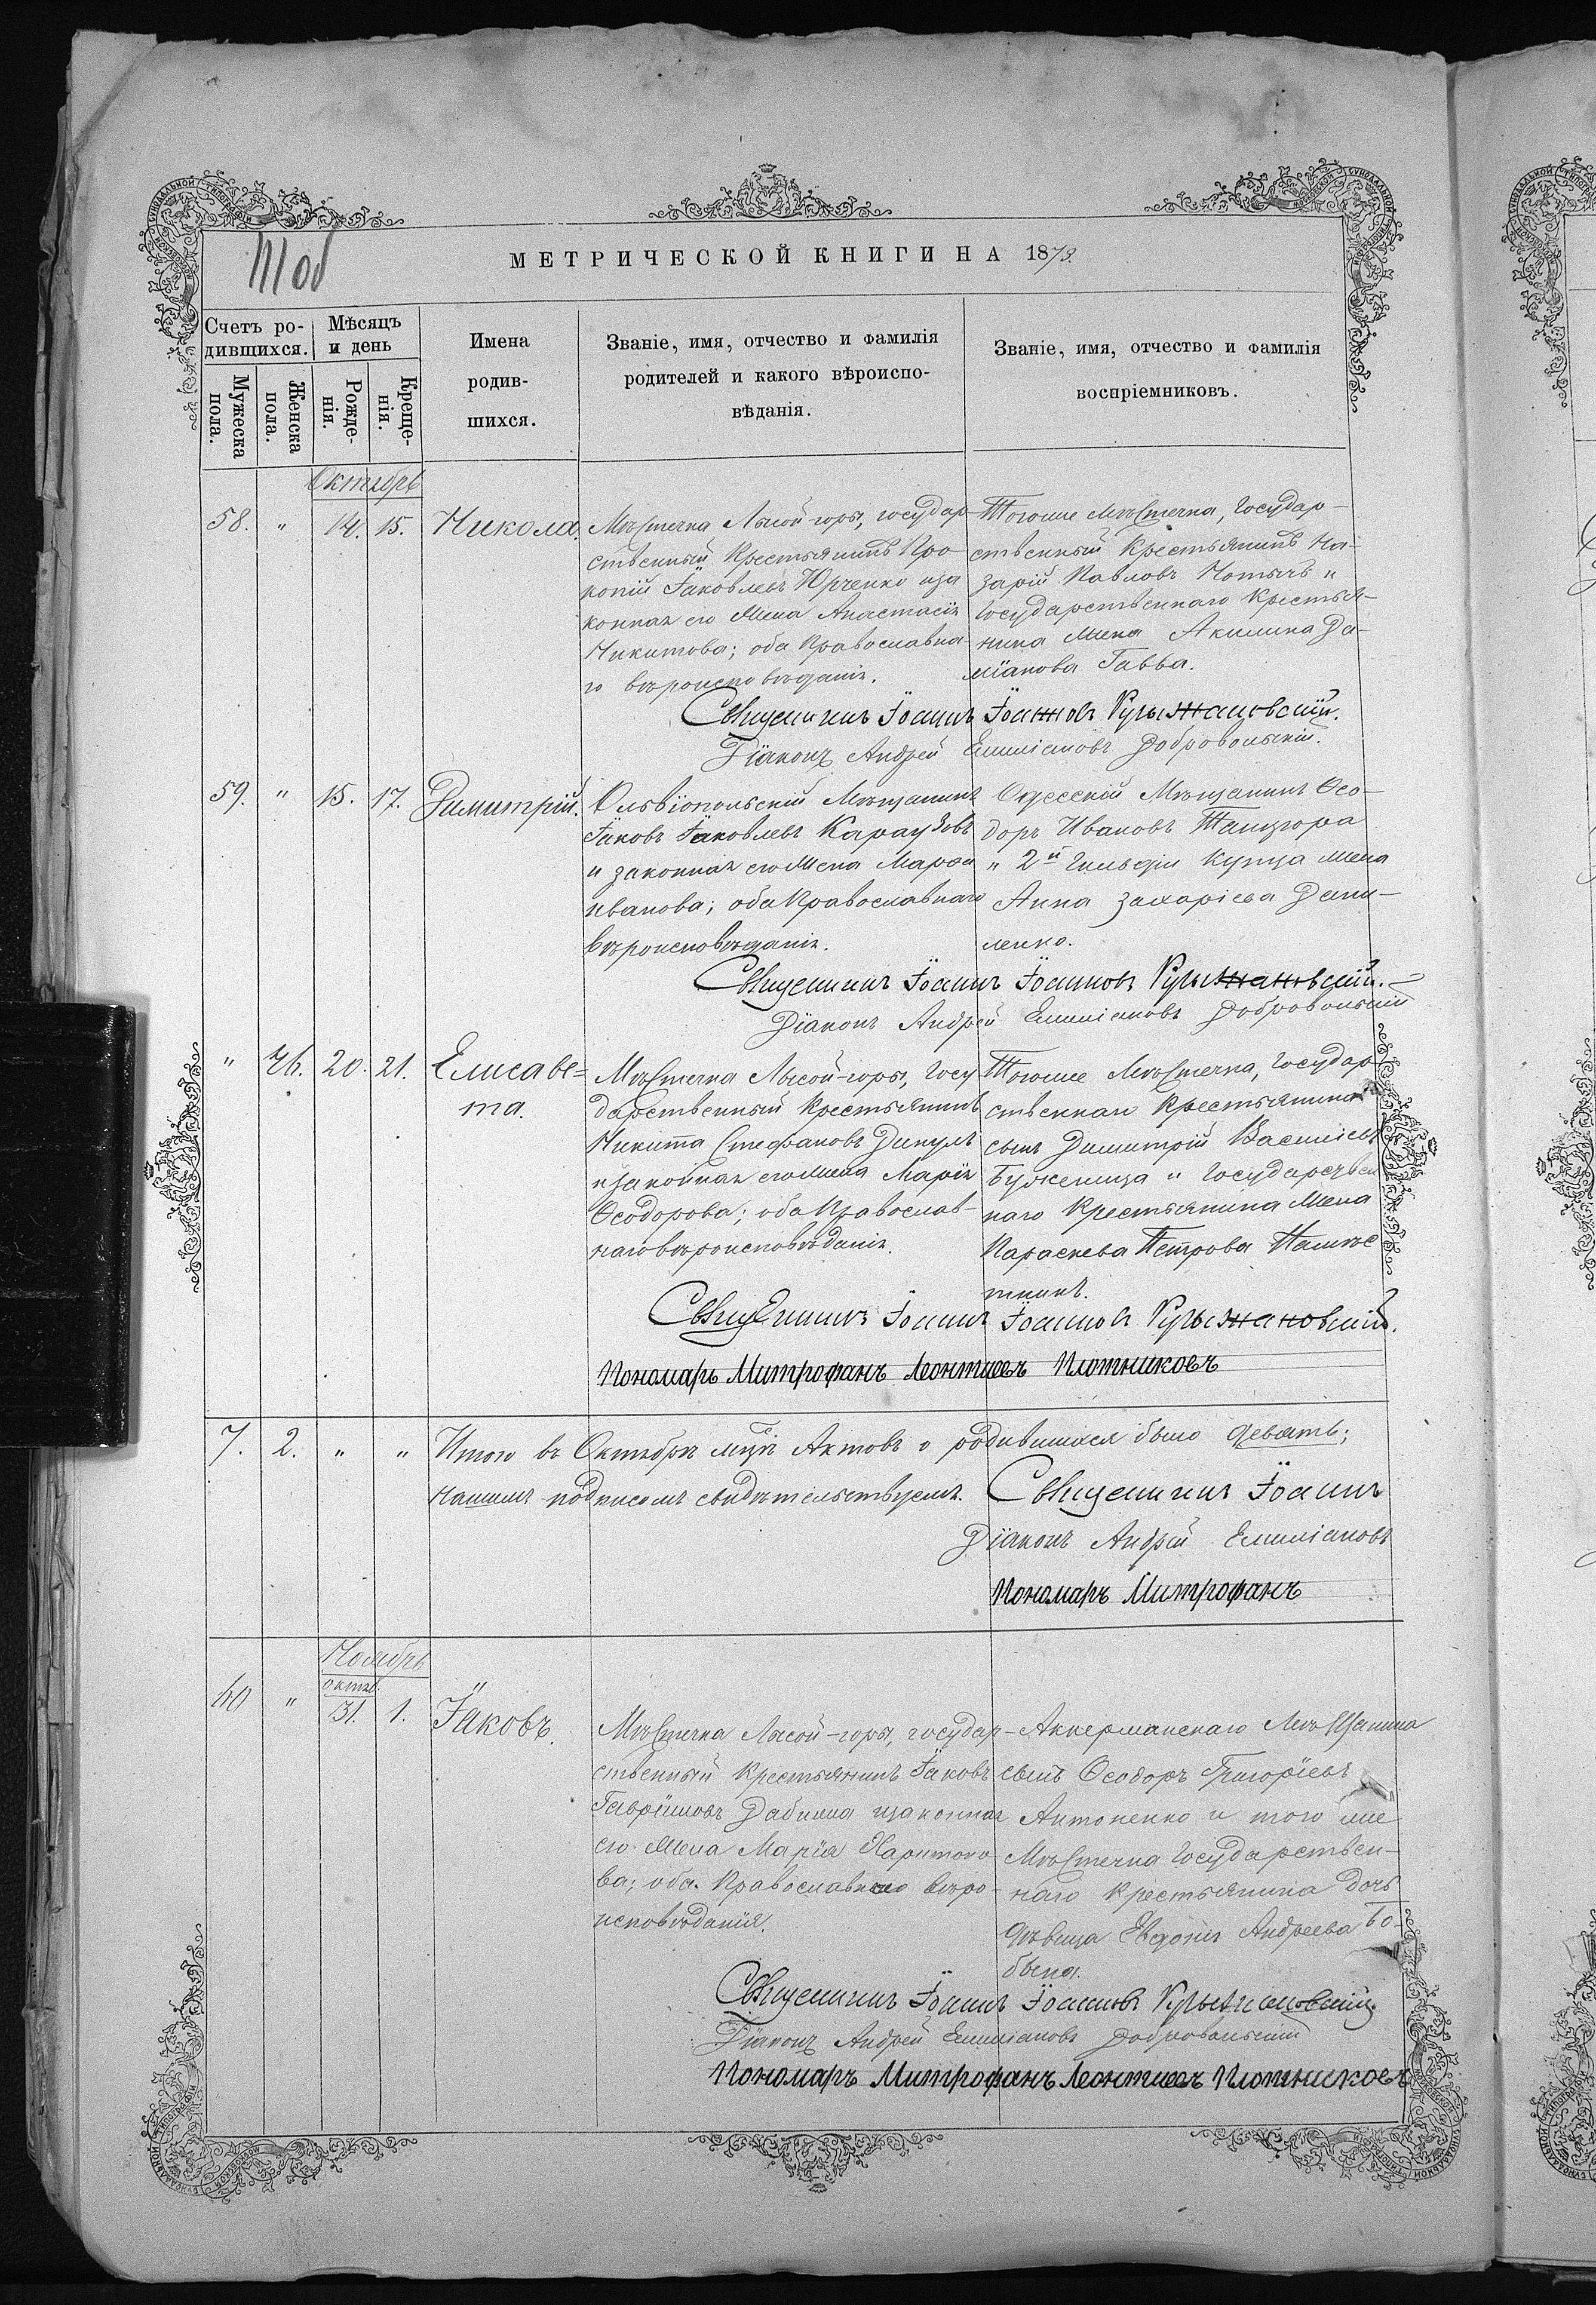 МЕТРИЧЕСКОЙ КНИГИ НА 1873.
Счетъ ро-
дившихся.
Мѣсяцъ
и день
Мужеска
пола.
Женска
пола.
Рожде-
нія.
Креще-
нія.
Имена
родив-
шихся.
Званіе, имя, отчество и фамилія
родителей и какого вѣроиспо-
вѣданія.
Званіе, имя, отчество и фамилія
воспріемниковъ.
Октябрь
58. " 14. 15. Никола.
Мѣстечка Лысой-горы, государ-
ственный Крестьянинъ Про-
копій Іаковлевъ Юрченко иза
конная его Жена Анастасія
Никитова; оба Православна-
го вѣроисповѣданія.
Тогоже Мѣстечка, Государ-
ственный Крестьянинъ На-
зарій Павловъ и
Государственнаго Крестья-
нина Жена Акилина Да-
міанова Гавва.
Священникъ Іоаннъ Іоанновъ Крыжановскій.
Діаконъ Андрей Емиліановъ Добровольскій.
59. " 15. 17. Димитрій.
Ольвіопольскій Мѣщанинъ
Іаковъ Іаковлевъ Караузовъ
и законная его Жена Марѳа
Иванова; оба Православнаго
вѣроисповѣданія.
Одесскій Мѣщанинъ Ѳео-
доръ Ивановъ
и 2й Гильдіи Купца Жена
Анна Захаріева Дани-
ленко.
Священникъ Іоаннъ Іоанновъ Крыжановскій.
Діаконъ Андрей Емиліановъ Добровольскій
" 20. 21. Елисаве-
та.
Мѣстечка Лысой-горы, Госу
дарственный Крестьянинъ
Никита Стефановъ Дикулъ
и законная его Жена Марія
Ѳеодорова; оба Православ-
наго вѣроисповѣданія.
Тогоже Мѣстечка, Государ-
ственнаго Крестьянина
сынъ Димитрій Василіевъ
Буженица и Государствен
наго Крестьянина Жена
Параскева Петрова
Священникъ Іоаннъ Іоанновъ Крыжановскій.
Пономарь Митрофанъ Леонтиевъ Плотниковъ
7. 2. " " Итого въ Октябрѣ мцѣ Актовъ о родившихся было девять;
Нашимъ подписомъ свидѣтельствуемъ. Священникъ Іоаннъ
Діаконъ Андрей Емиліановъ
Пономаръ Митрофанъ
Ноябрь
октяб.
60 " 31. 1. Іаковъ.
Мѣстечка Лысой-горы, государ-
ственный Крестьянинъ Іаковъ
Гавріиловъ изаконная
его Жена Марія Харитоно-
ва; оба Православнаго вѣро-
исповѣданія.
Аккерманскаго Мѣщанина
сынъ Ѳеодоръ Григоріевъ
Антоненко и того же
Мѣстечка Государствен-
наго Крестьянина дочь
дѣвица Евдокія Андреева
Священникъ Іоаннъ Іоанновъ Крыжановскій.
Діаконъ Андрей Емиліановъ Добровольскій
Пономаръ Митрофанъ Леонтиевъ Плотниковъ